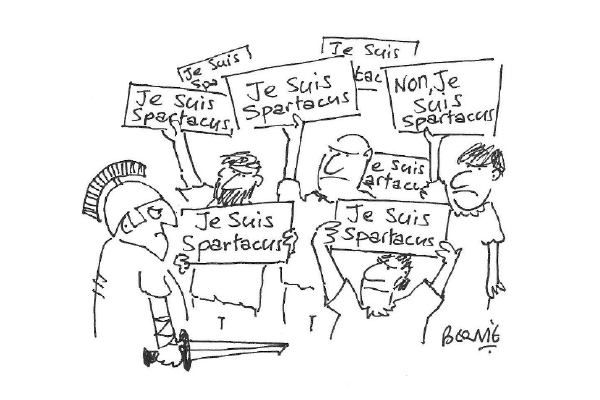 Je Suis
Je Suis
Spartacus
Je Suis
Spartacus
Je Suis
Non, Je
Suis
Spartacus
Je Suis
Spartacus
Je Suis
Spartacus
Je Suis
Spartacus
BERNIE